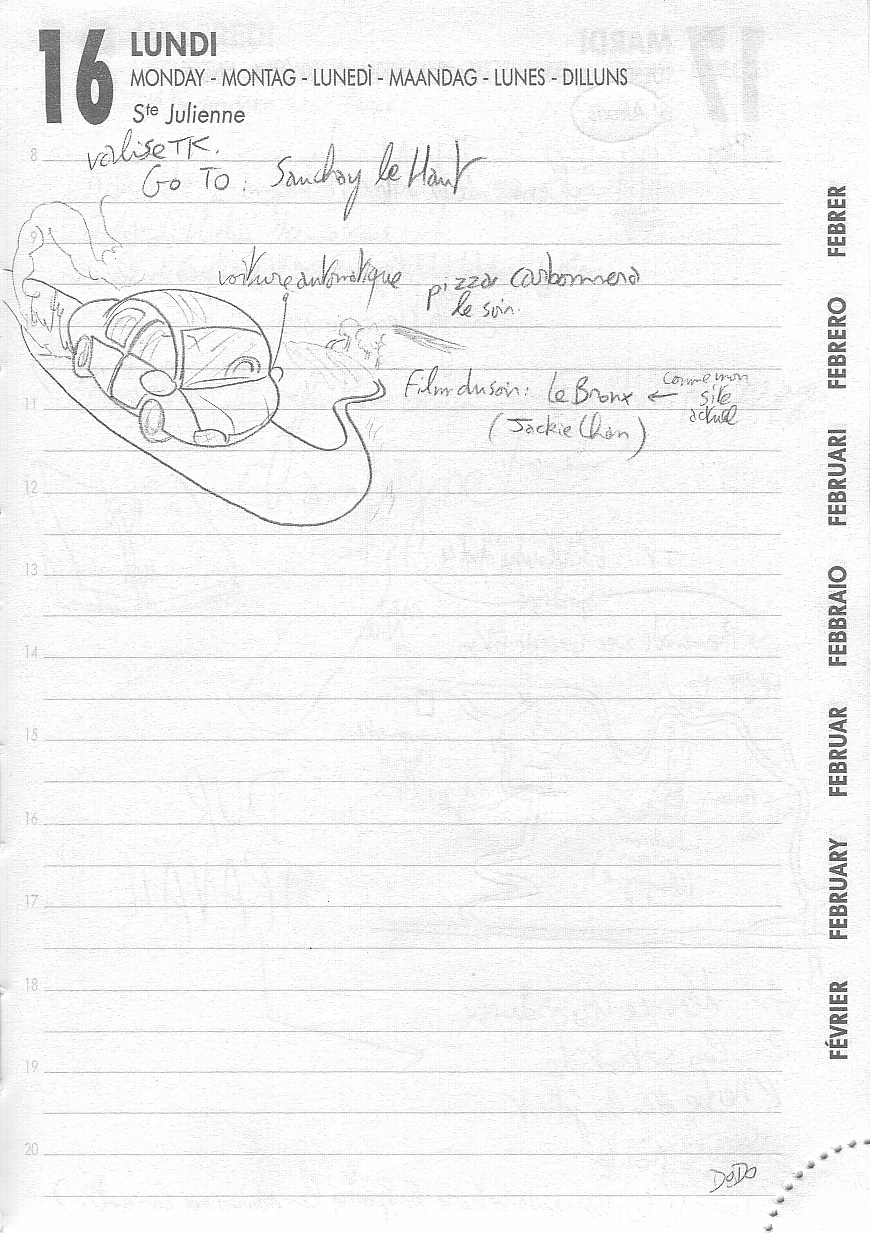 16 LUNDI
MONDAY - MONTAG - LUNEDÌ - MAANDAG - LUNES - DILLUNS
Ste Julienne
8
valise TK.
GO TO : Sauchay le Haut
9
voiture automatique
pizza Carbonnera
le soir.
Film du soir : Le Bronx ← comme mon
site
actuel
(Jackie Chan)
11
12
13
14
15
16
17
18
19
20
DODO
FEBRER
FEBRERO
FEBRUARI
FEBBRAIO
FEBRUAR
FEBRUARY
FÉVRIER